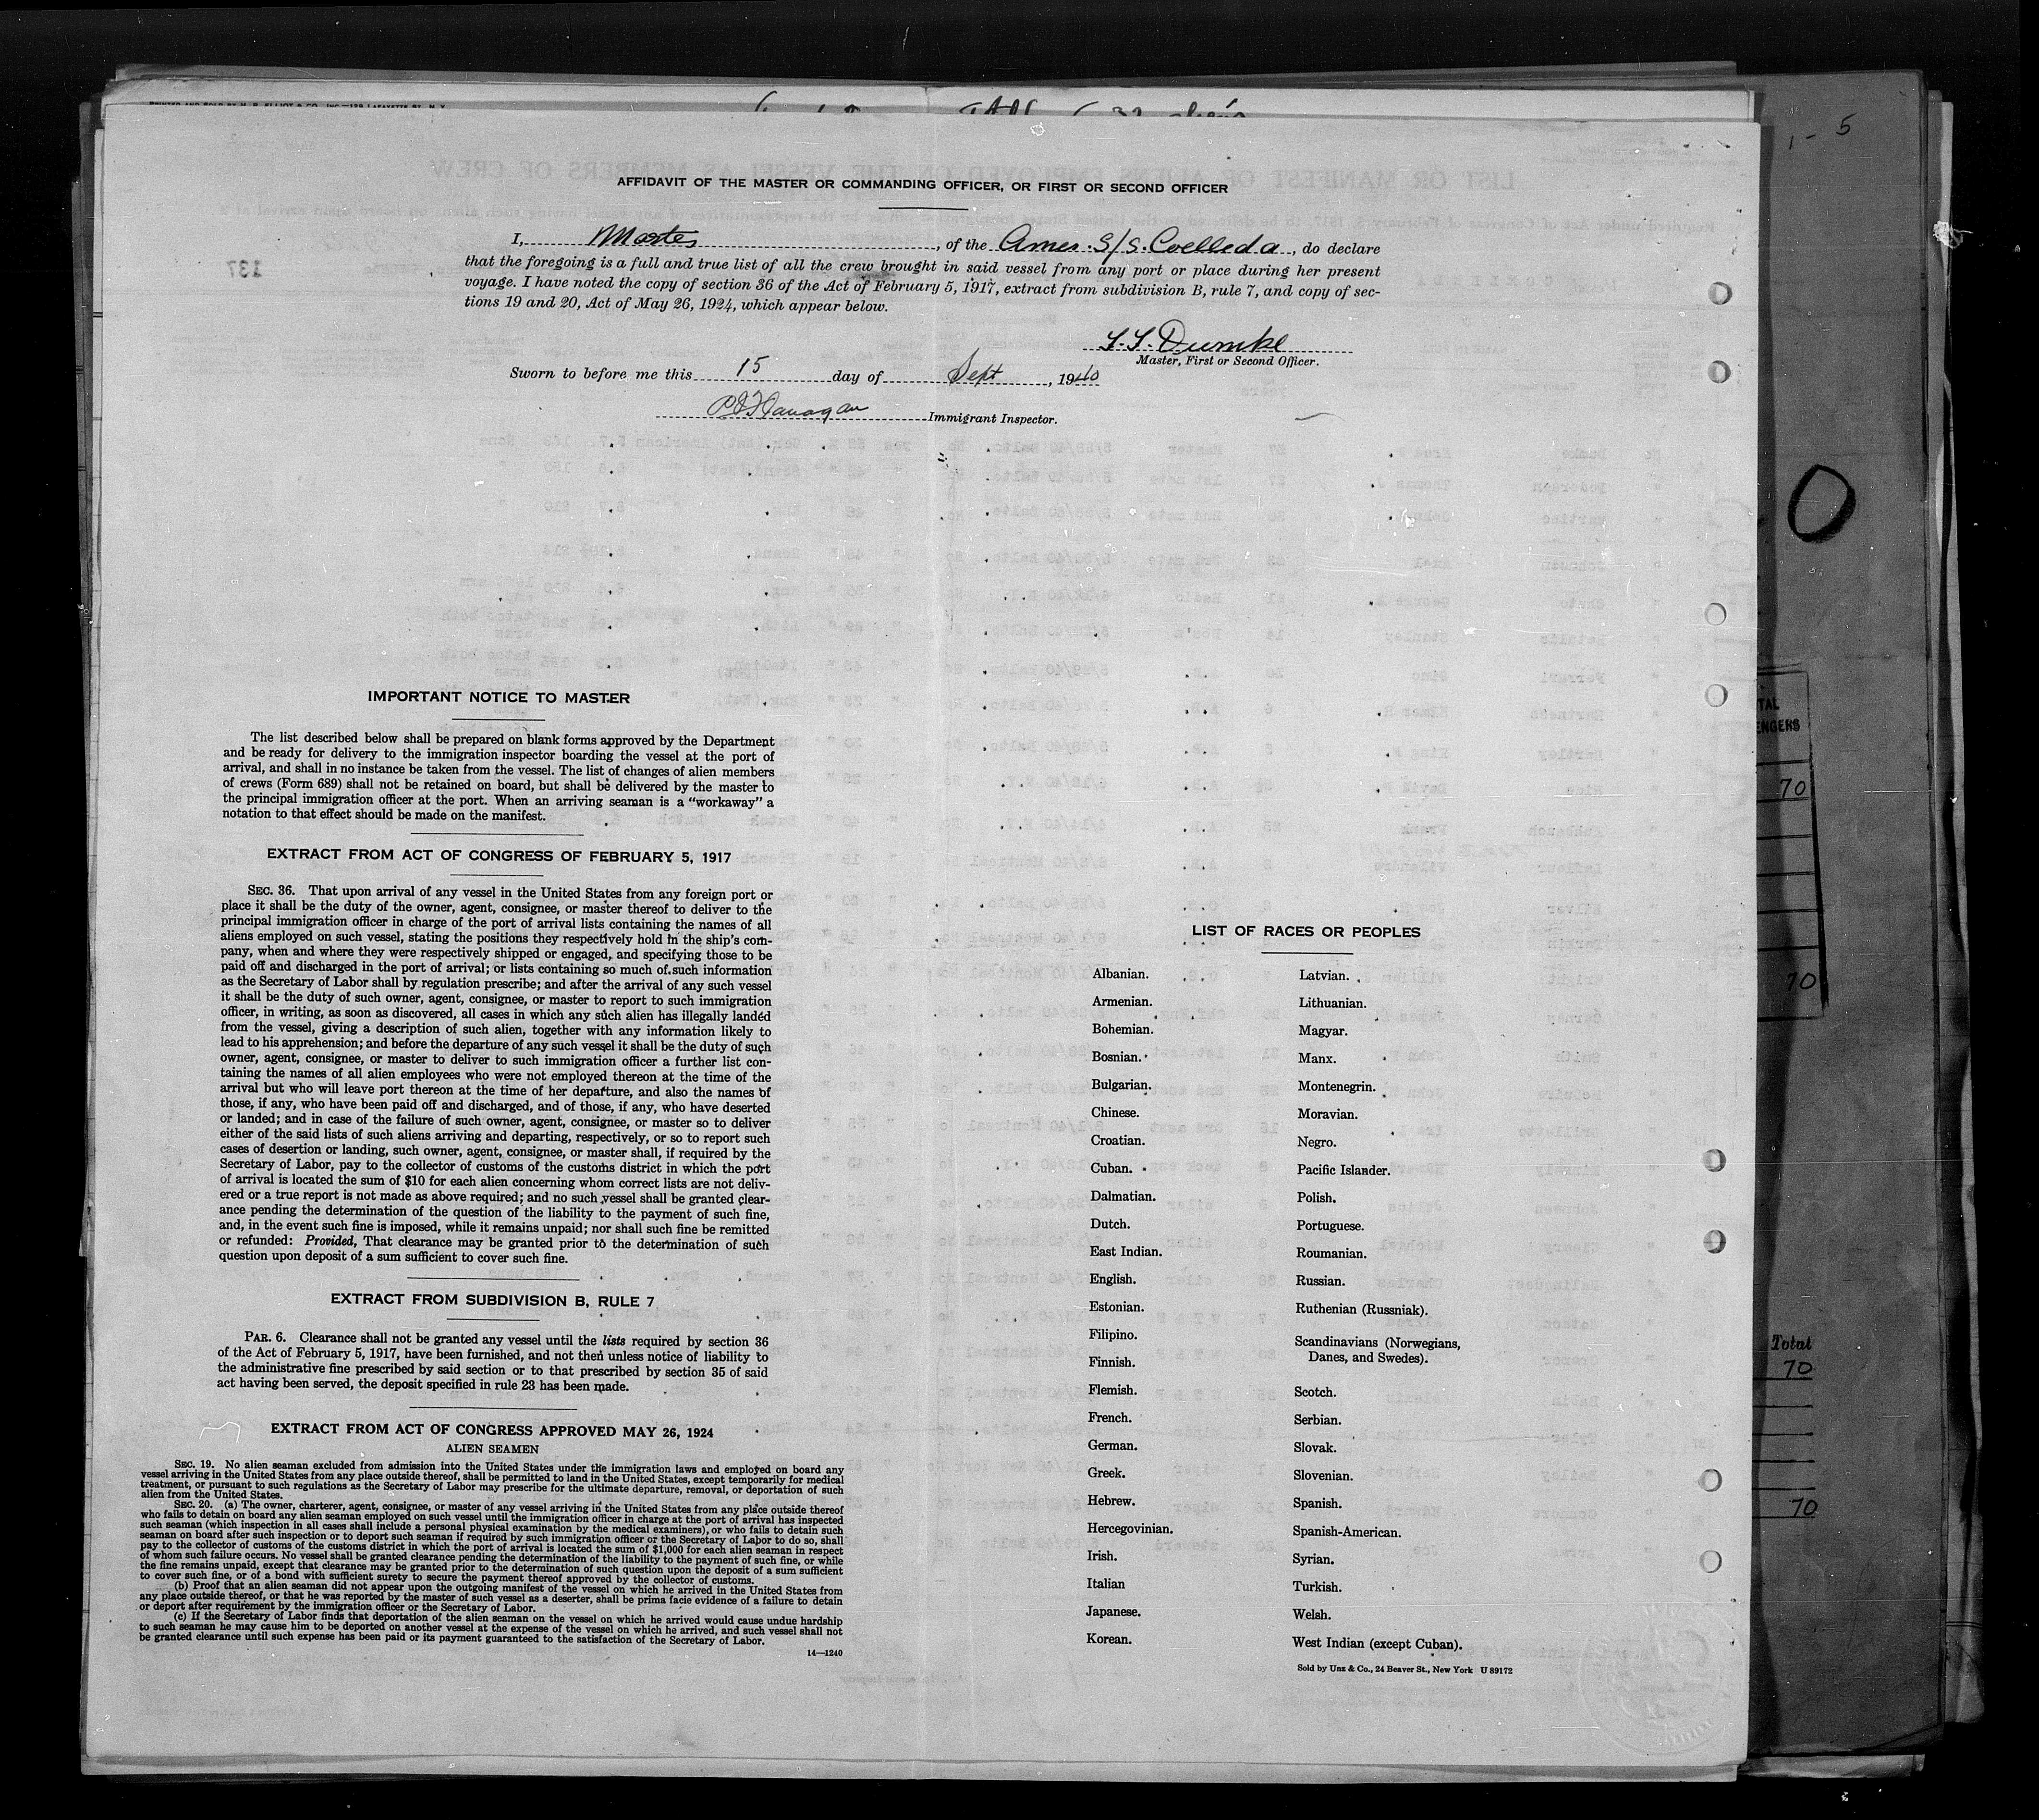 1 - 5
AFFIDAVIT OF THE MASTER OR COMMANDING OFFICER, OR FIRST OR SECOND OFFICER
I, Master, of the Amer. S/S. Coelleda, do declare
that the foregoing is a full and true list of all the crew brought in said vessel from any port or place during her present
voyage. I have noted the copy of section 36 of the Act of February 5, 1917, extract from subdivision B, rule 7, and copy of sec-
tions 19 and 20, Act of May 26, 1924, which appear below.
Dumke
Master, First or Second Officer.
Sworn to before me this 15 day of Sept, 1940
Immigrant Inspector.
IMPORTANT NOTICE TO MASTER
The list described below shall be prepared on blank forms approved by the Department
and be ready for delivery to the immigration inspector boarding the vessel at the port of
arrival, and shall in no instance be taken from the vessel. The list of changes of alien members
of crews (Form 689) shall not be retained on board, but shall be delivered by the master to
the principal immigration officer at the port. When an arriving seaman is a “workaway” a
notation to that effect should be made on the manifest.
EXTRACT FROM ACT OF CONGRESS OF FEBRUARY 5, 1917
SEC. 36. That upon arrival of any vessel in the United States from any foreign port or
place it shall be the duty of the owner, agent, consignee, or master thereof to deliver to the
principal immigration officer in charge of the port of arrival lists containing the names of all
aliens employed on such vessel, stating the positions they respectively hold in the ship's com-
pany, when and where they were respectively shipped or engaged, and specifying those to be
paid off and discharged in the port of arrival; or lists containing so much of such information
as the Secretary of Labor shall by regulation prescribe; and after the arrival of any such vessel
it shall be the duty of such owner, agent, consignee, or master to report to such immigration
officer, in writing, as soon as discovered, all cases in which any such alien has illegally landed
from the vessel, giving a description of such alien, together with any information likely to
lead to his apprehension; and before the departure of any such vessel it shall be the duty of such
owner, agent, consignee, or master to deliver to such immigration officer a further list con-
taining the names of all alien employees who were not employed thereon at the time of the
arrival but who will leave port thereon at the time of her departure, and also the names of
those, if any, who have been paid off and discharged, and of those, if any, who have deserted
or landed; and in case of the failure of such owner, agent, consignee, or master so to deliver
either of the said lists of such aliens arriving and departing, respectively, or so to report such
cases of desertion or landing, such owner, agent, consignee, or master shall, if required by the
Secretary of Labor, pay to the collector of customs of the customs district in which the port
of arrival is located the sum of $10 for each alien concerning whom correct lists are not deliv-
ered or a true report is not made as above required; and no such vessel shall be granted clear-
ance pending the determination of the question of the liability to the payment of such fine,
and, in the event such fine is imposed, while it remains unpaid; nor shall such fine be remitted
or refunded: Provided, That clearance may be granted prior to the determination of such
question upon deposit of a sum sufficient to cover such fine.
EXTRACT FROM SUBDIVISION B, RULE 7
PAR. 6. Clearance shall not be granted any vessel until the lists required by section 36
of the Act of February 5, 1917, have been furnished, and not then unless notice of liability to
the administrative fine prescribed by said section or to that prescribed by section 35 of said
act having been served, the deposit specified in rule 23 has been made.
EXTRACT FROM ACT OF CONGRESS APPROVED MAY 26, 1924
ALIEN SEAMEN
SEC. 19. No alien seaman excluded from admission into the United States under the immigration laws and employed on board any
vessel arriving in the United States from any place outside thereof, shall be permitted to land in the United States, except temporarily for medical
treatment, or pursuant to such regulations as the Secretary of Labor may prescribe for the ultimate departure, removal, or deportation of such
alien from the United States.
SEC. 20. (a) The owner, charterer, agent, consignee, or master of any vessel arriving in the United States from any place outside thereof
who fails to detain on board any alien seaman employed on such vessel until the immigration officer in charge at the port of arrival has inspected
such seaman (which inspection in all cases shall include a personal physical examination by the medical examiners), or who fails to detain such
seaman on board after such inspection or to deport such seaman if required by such immigration officer or the Secretary of Labor to do so, shall
pay to the collector of customs of the customs district in which the port of arrival is located the sum of $1,000 for each alien seaman in respect
of whom such failure occurs. No vessel shall be granted clearance pending the determination of the liability to the payment of such fine, or while
the fine remains unpaid, except that clearance may be granted prior to the determination of such question upon the deposit of a sum sufficient
to cover such fine, or of a bond with sufficient surety to secure the payment thereof approved by the collector of customs.
(b) Proof that an alien seaman did not appear upon the outgoing manifest of the vessel on which he arrived in the United States from
any place outside thereof, or that he was reported by the master of such vessel as a deserter, shall be prima facie evidence of a failure to detain
or deport after requirement by the immigration officer or the Secretary of Labor.
(c) If the Secretary of Labor finds that deportation of the alien seaman on the vessel on which he arrived would cause undue hardship
to such seaman he may cause him to be deported on another vessel at the expense of the vessel on which he arrived, and such vessel shall not
be granted clearance until such expense has been paid or its payment guaranteed to the satisfaction of the Secretary of Labor.
14—1240
LIST OF RACES OR PEOPLES
Albanian.
Armenian.
Bohemian.
Bosnian.
Bulgarian.
Chinese.
Croatian.
Cuban.
Dalmatian.
Dutch.
East Indian.
English.
Estonian.
Filipino.
Finnish.
Flemish.
French.
German.
Greek.
Hebrew.
Hercegovinian.
Irish.
Italian
Japanese.
Korean.
Latvian.
Lithuanian.
Magyar.
Manx.
Montenegrin.
Moravian.
Negro.
Pacific Islander.
Polish.
Portuguese.
Roumanian.
Russian.
Ruthenian (Russniak).
Scandinavians (Norwegians,
Danes, and Swedes).
Scotch.
Serbian.
Slovak.
Slovenian.
Spanish.
Spanish-American.
Syrian.
Turkish.
Welsh.
West Indian (except Cuban).
Sold by Unz & Co., 24 Beaver St., New York U 89172
70
70
Total
70
70